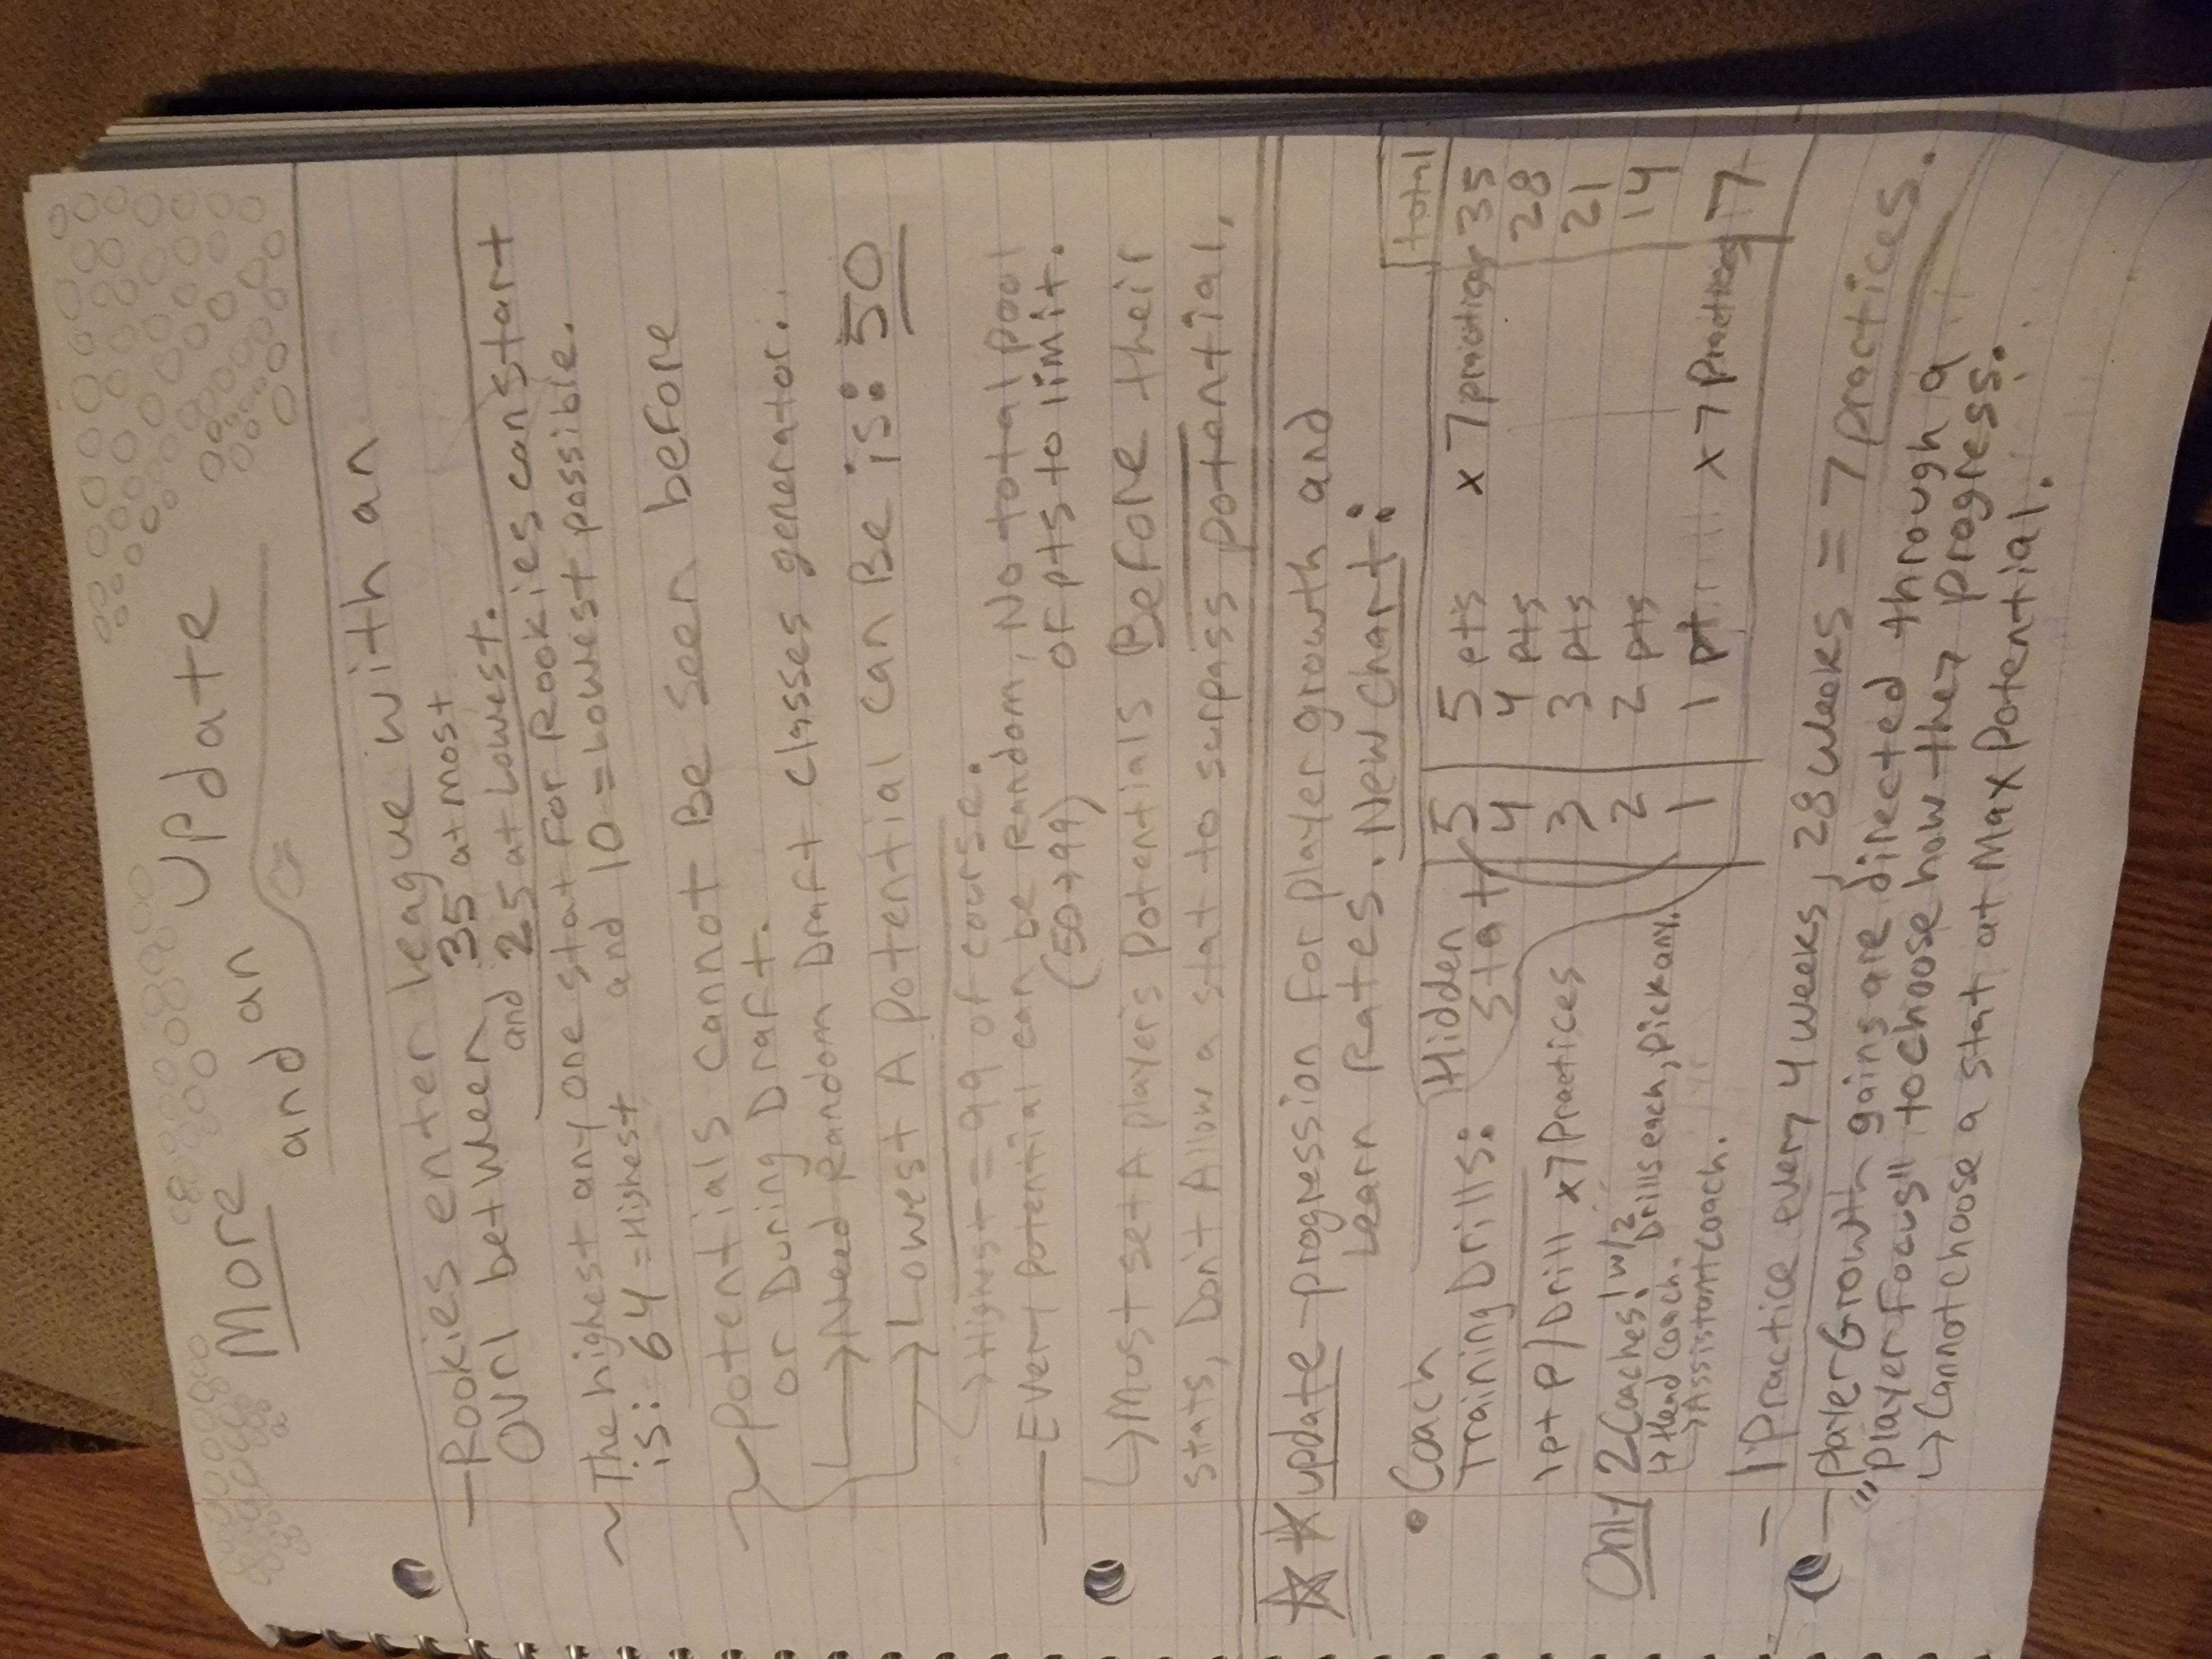 More
and an Update
- Rookies enter League with an
OVRl between, 35 at most
and 25 at Lowest.
~ The highest any one stat for Rookies can start
is: 64 = Highest and 10 = Lowest possible.
~ Potentials cannot Be Seen before
or During Draft.
→ Need Random Draft classes generator.
→ Lowest A potential can Be is: 50
→ Highest = 99 of course.
- Every Potential can be Random, No total pool
(50→99) of pts to limit.
↳ Must set A player's Potentials Before their
stats, Don't Allow a stat to surpass potential.
☆☆ update - progression for player growth and
Learn Rates. New chart:
• Coach
Training Drills:
1 pt p/Drill x7 Practices
Only 2 Coaches! w/2
Drills each, pick any.
↳ Head Coach.
↳ Assistant coach.
Hidden
stat
total
5 5 pts x 7 practices 35
4 4 pts 28
3 3 pts 21
2 2 pts 14
1 1 pt x 7 Practices 7
- 1 Practice every 4 weeks, 28 weeks = 7 practices.
- player Growth gains are directed through a
"player Focus" to choose how they progress.
↳ Cannot choose a stat at Max Potential.